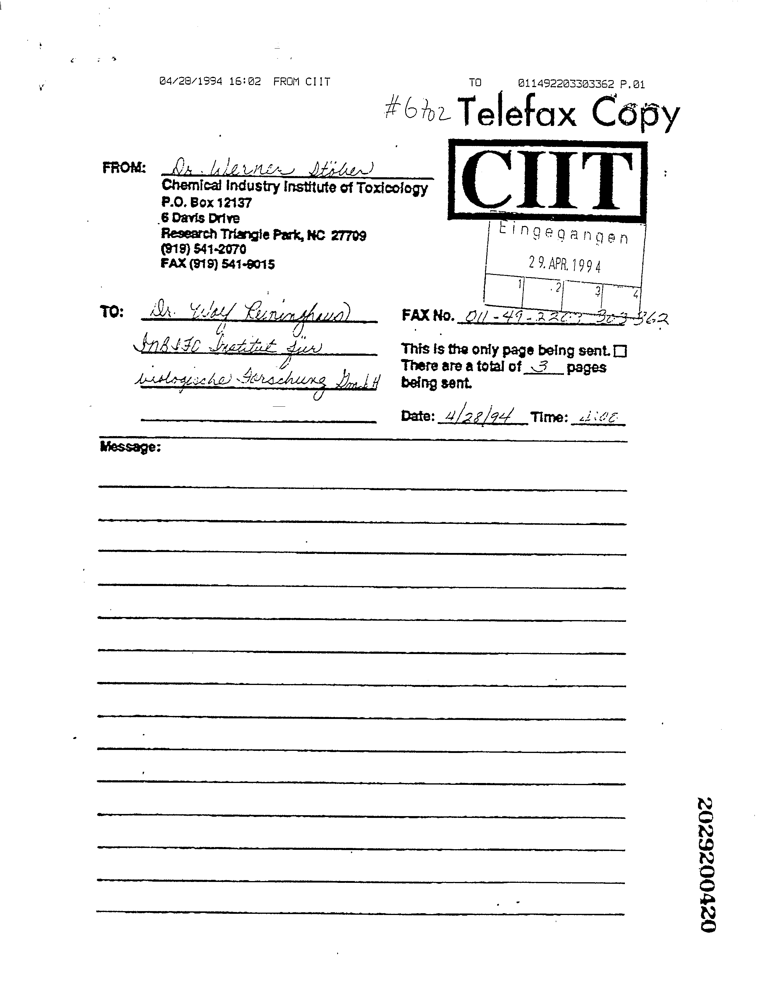 04/28/1994 16:02 FROM CIIT TO 011492203303362 P.01
#6702 Telefax Copy
CIIT
FROM: Dr. Werner Stöber
Chemical Industry Institute of Toxicology
P.O. Box 12137
6 Davis Drive
Research Triangle Park, NC 27709
(919) 541-2070
FAX (919) 541-9015
Eingegangen
29. APR. 1994
1 2 3 4
TO: Dr. Wolf Reininghaus
INBIFO Institut für
biologische Forschung GmbH
FAX No. 011-49-2203-303-362
This is the only page being sent. ☐
There are a total of 3 pages
being sent.
Date: 4/28/94 Time:
Message:
2029200420